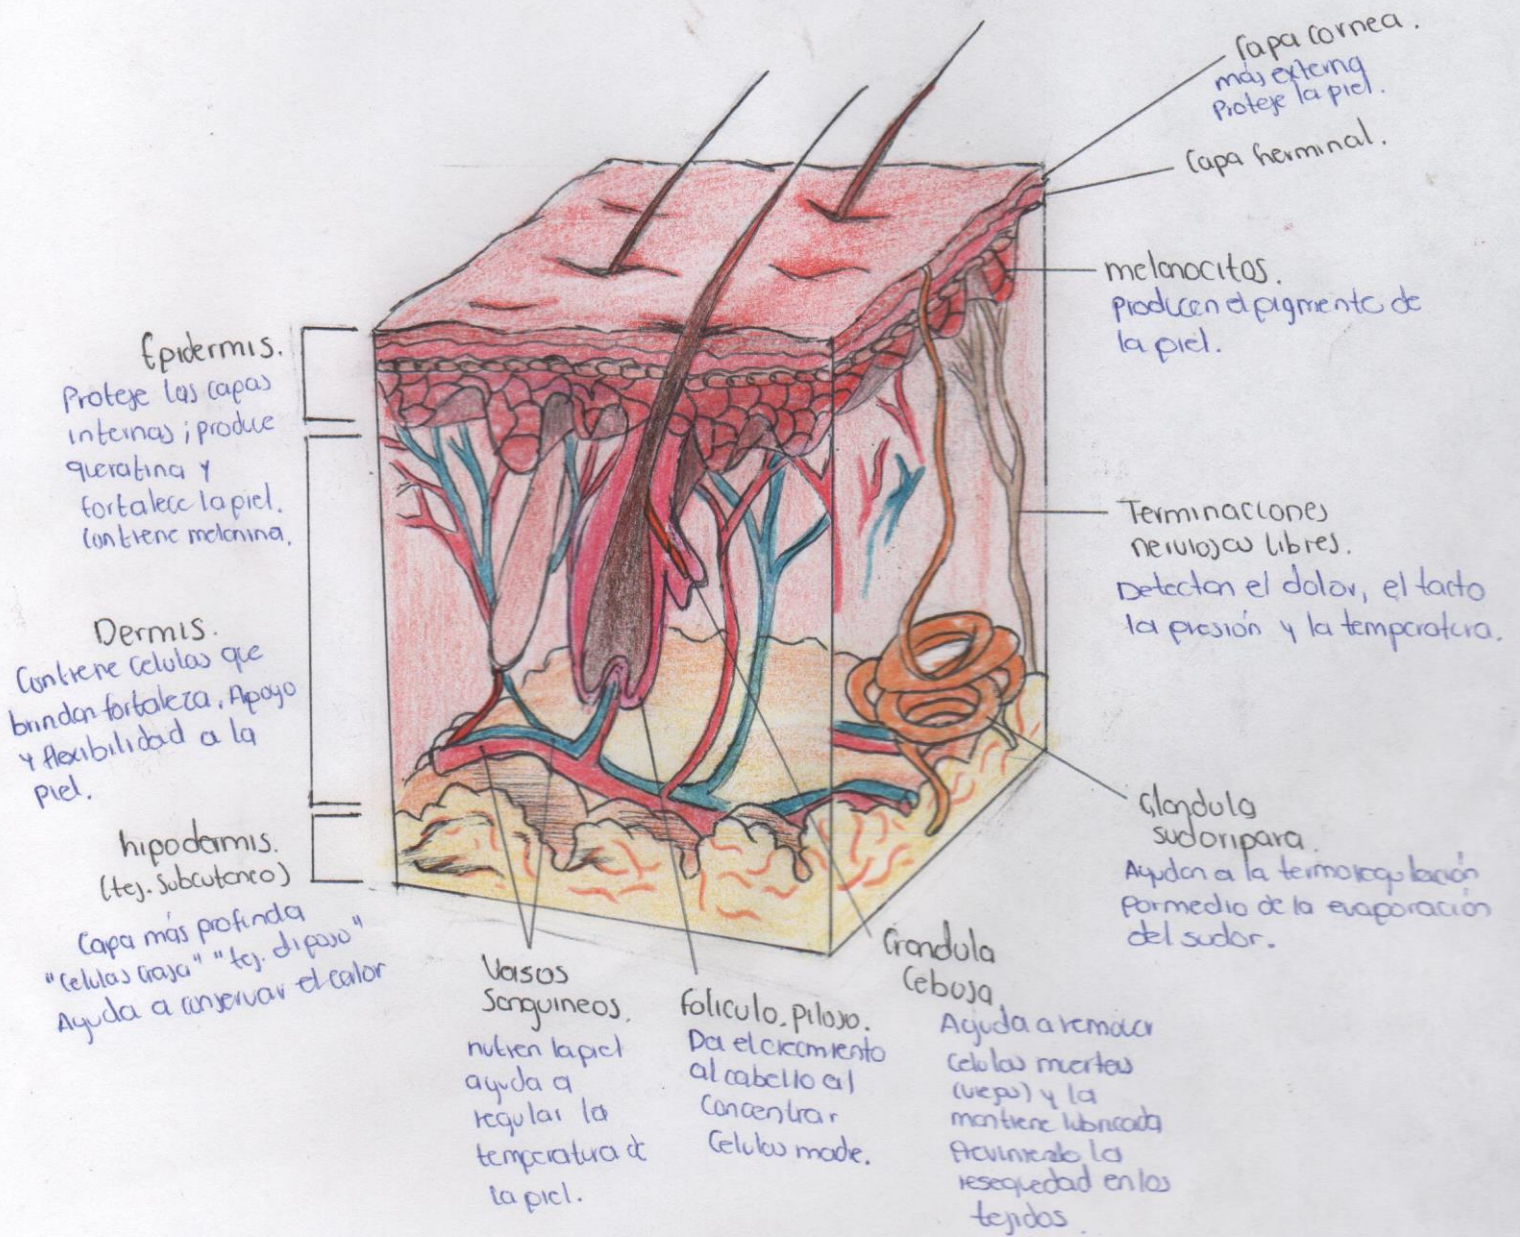 Capa cornea.
más externa
Proteje la piel.
Capa herminal.
melanocitos.
Producen el pigmento de
la piel.
Terminaciones
nerviosas libres.
Detectan el dolor, el tacto
la presión y la temperatura.
Glandula
sudoripara.
Ayudan a la termoregulación
pormedio de la evaporación
del sudor.
Epidermis.
Proteje las capas
internas; produce
queratina y
fortalece la piel.
Contiene melanina.
Dermis.
Contiene celulas que
brindan fortaleza. Apoyo
y flexibilidad a la
piel.
hipodermis.
(tej. Subcutaneo)
Capa más profunda
"celulas Grasa" "tej. diposo"
Ayuda a conservar el calor
Vasos
Sanguineos.
nutren la piel
ayuda a
regular la
temperatura de
la piel.
foliculo. piloso.
Da el crecimiento
al cabello al
Concentrar
Celulas made.
Grandula
Cebosa
Ayuda a remover
Celulas muertas
(viejas) y la
mantiene lubricada
la
resequedad en los
tejidos.